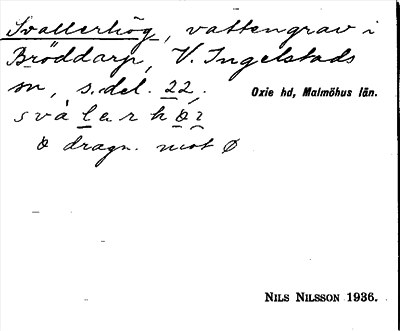 Svallerhög, vattengrav i
Bröddarp, V. Ingelstads
sn, s. del. 22.
Oxie hd, Malmöhus län.
svàlerhö́ꝛ
ö dragn. mot ø
NILS NILSSON 1936.